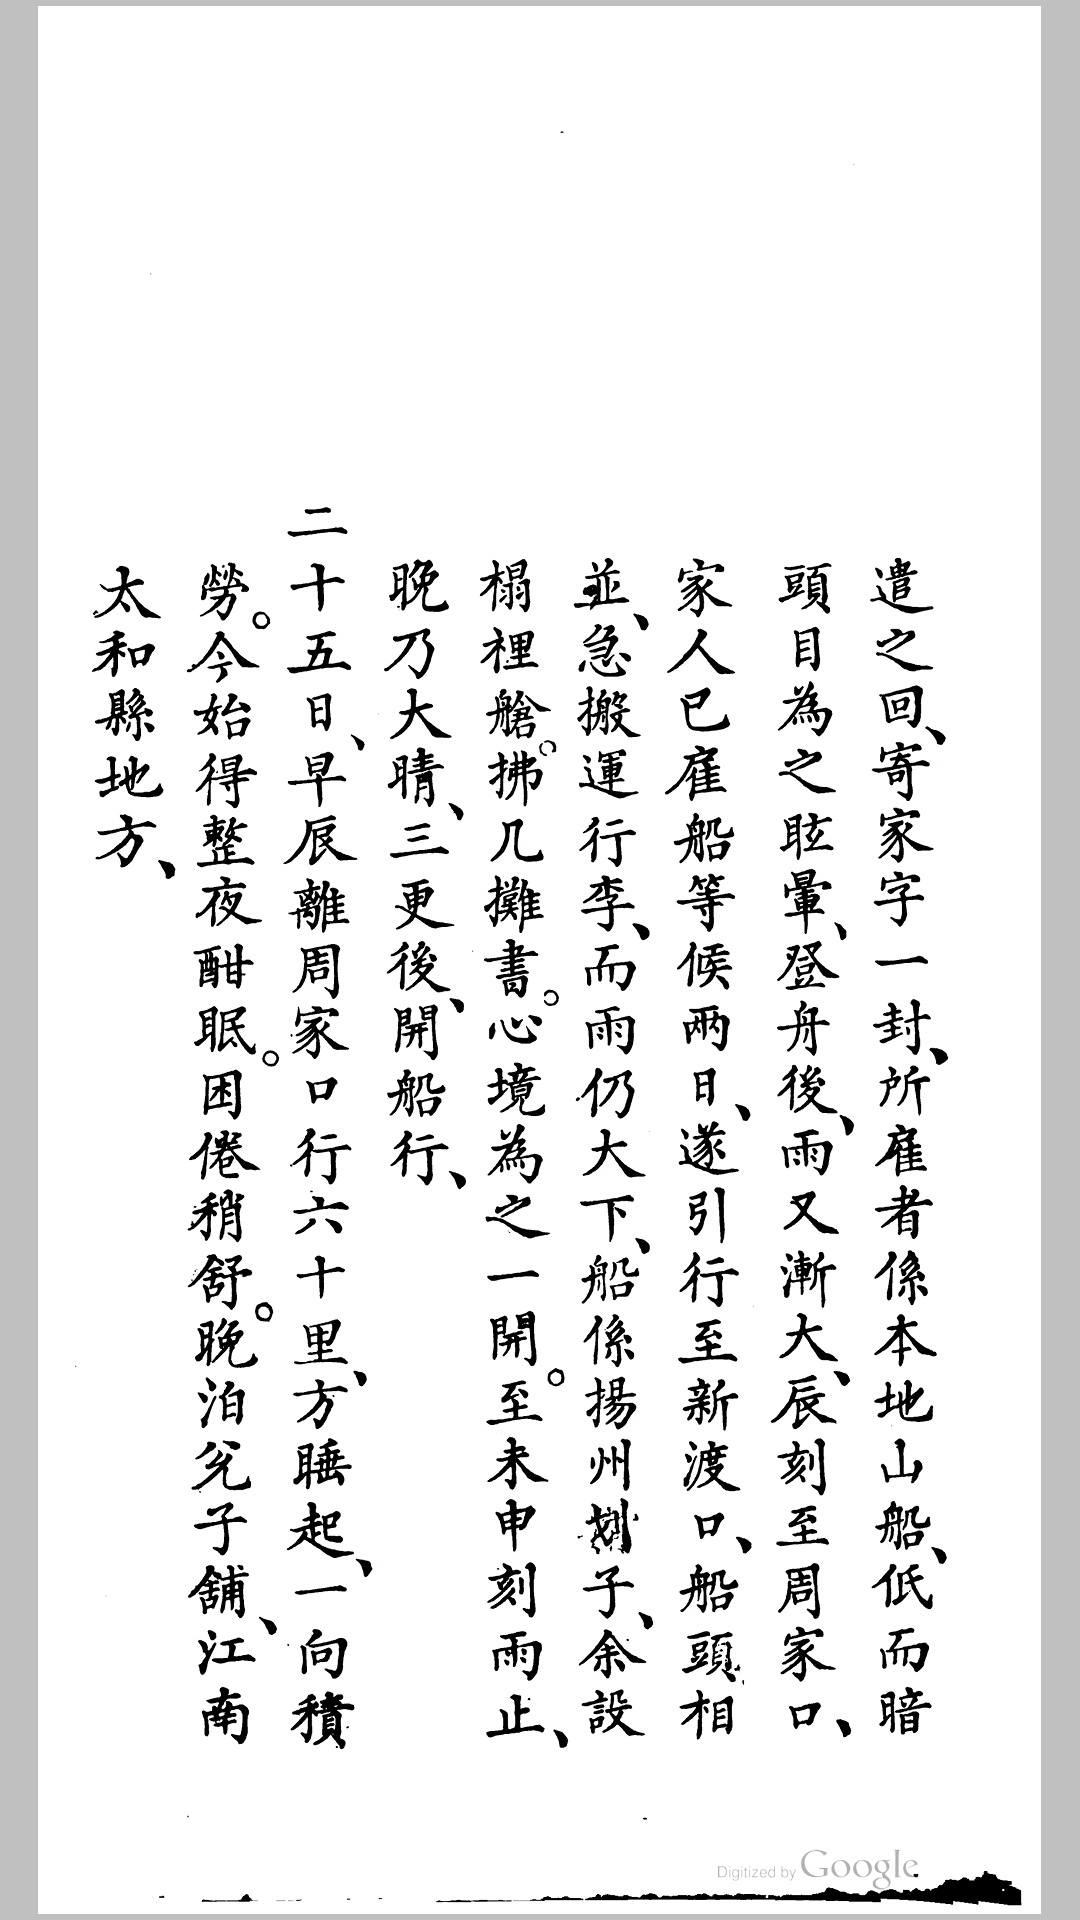 遣之回、寄家字一封、所雇者係本地山船、低而暗
頭目為之眩暈、登舟後、雨又漸大、辰刻至周家口、
家人已雇船等候兩日、遂引行至新渡口、船頭相
並、急搬運行李、而雨仍大下、船係揚州划子、余設
榻裡艙。拂几攤書。心境為之一開。至未申刻雨止、
晚乃大晴、三更後、開船行、
二十五日、早辰離周家口行六十里、方睡起、一向積
勞。今始得整夜酣眠。困倦稍舒。晚泊兊子舖、江南
太和縣地方、
Digitized by Google